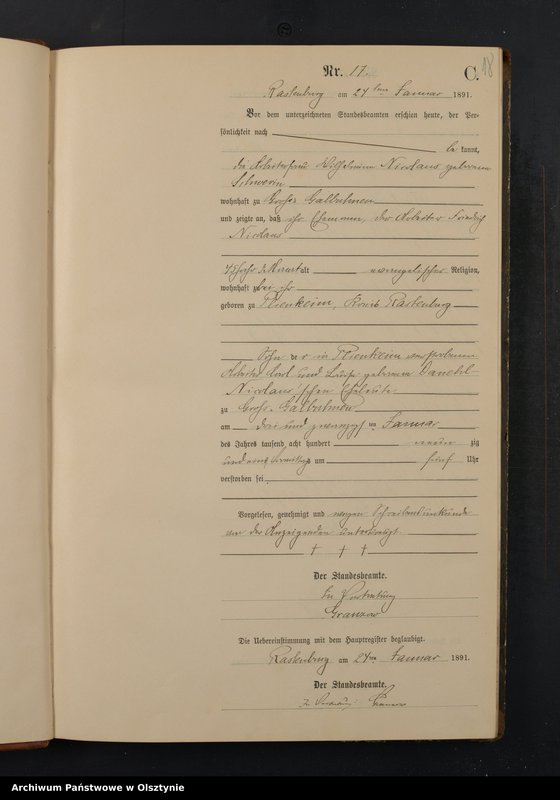 18
Nr. 17
C.
Rastenburg am 24ten Januar 1891.
Vor dem unterzeichneten Standesbeamten erschien heute, der Per-
sönlichkeit nach
bekannt,
die Arbeiterfrau Wilhelmine Nicolaus geborene
Schwerin
wohnhaft zu Groß Galbuhnen
und zeigte an, daß ihr Ehemann, der Arbeiter Friedrich
Nicolaus
alt evangelischer Religion,
wohnhaft zu bei ihr
geboren zu Plienkeim, Kreis Rastenburg
Sohn der in Plienkeim verstorbenen
Arbeiter Carl und Louise geborene
Nicolaus'schen Eheleute
zu Groß Galbuhnen
am drei und zwanzigsten Januar
des Jahres tausend acht hundert neun zig
und eins Vormittags um fünf Uhr
verstorben sei
Vorgelesen, genehmigt und wegen Schreibensunkunde
von der Anzeigenden unterkreuzt.
† † †
Der Standesbeamte.
In Vertretung
Granzow
Die Uebereinstimmung mit dem Hauptregister beglaubigt.
Rastenburg am 24ten Januar 1891.
Der Standesbeamte.
In Vertretung: Granzow
Archiwum Państwowe w Olsztynie